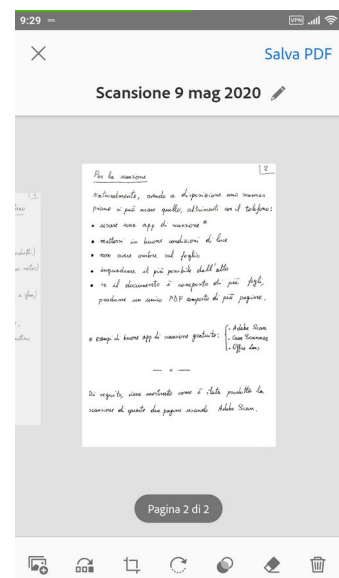 9:29
VPN
Salva PDF
Scansione 9 mag 2020
Per la scansione
2
Naturalmente, avendo a disposizione uno scanner
piano si può usare quello, altrimenti con il telefono:
• usare una app di scansione *
• mettersi in buone condizioni di luce
• non avere ombre sul foglio
• inquadrare il più possibile dall'alto
• se il documento è composto di più fogli,
produrre un unico PDF composto di più pagine.
* esempi di buone app di scansione gratuite:
- Adobe Scan
- Cam Scanner
- Office Lens
— o —
Di seguito, viene mostrato come è stata prodotta la
scansione di queste due pagine usando Adobe Scan.
Pagina 2 di 2